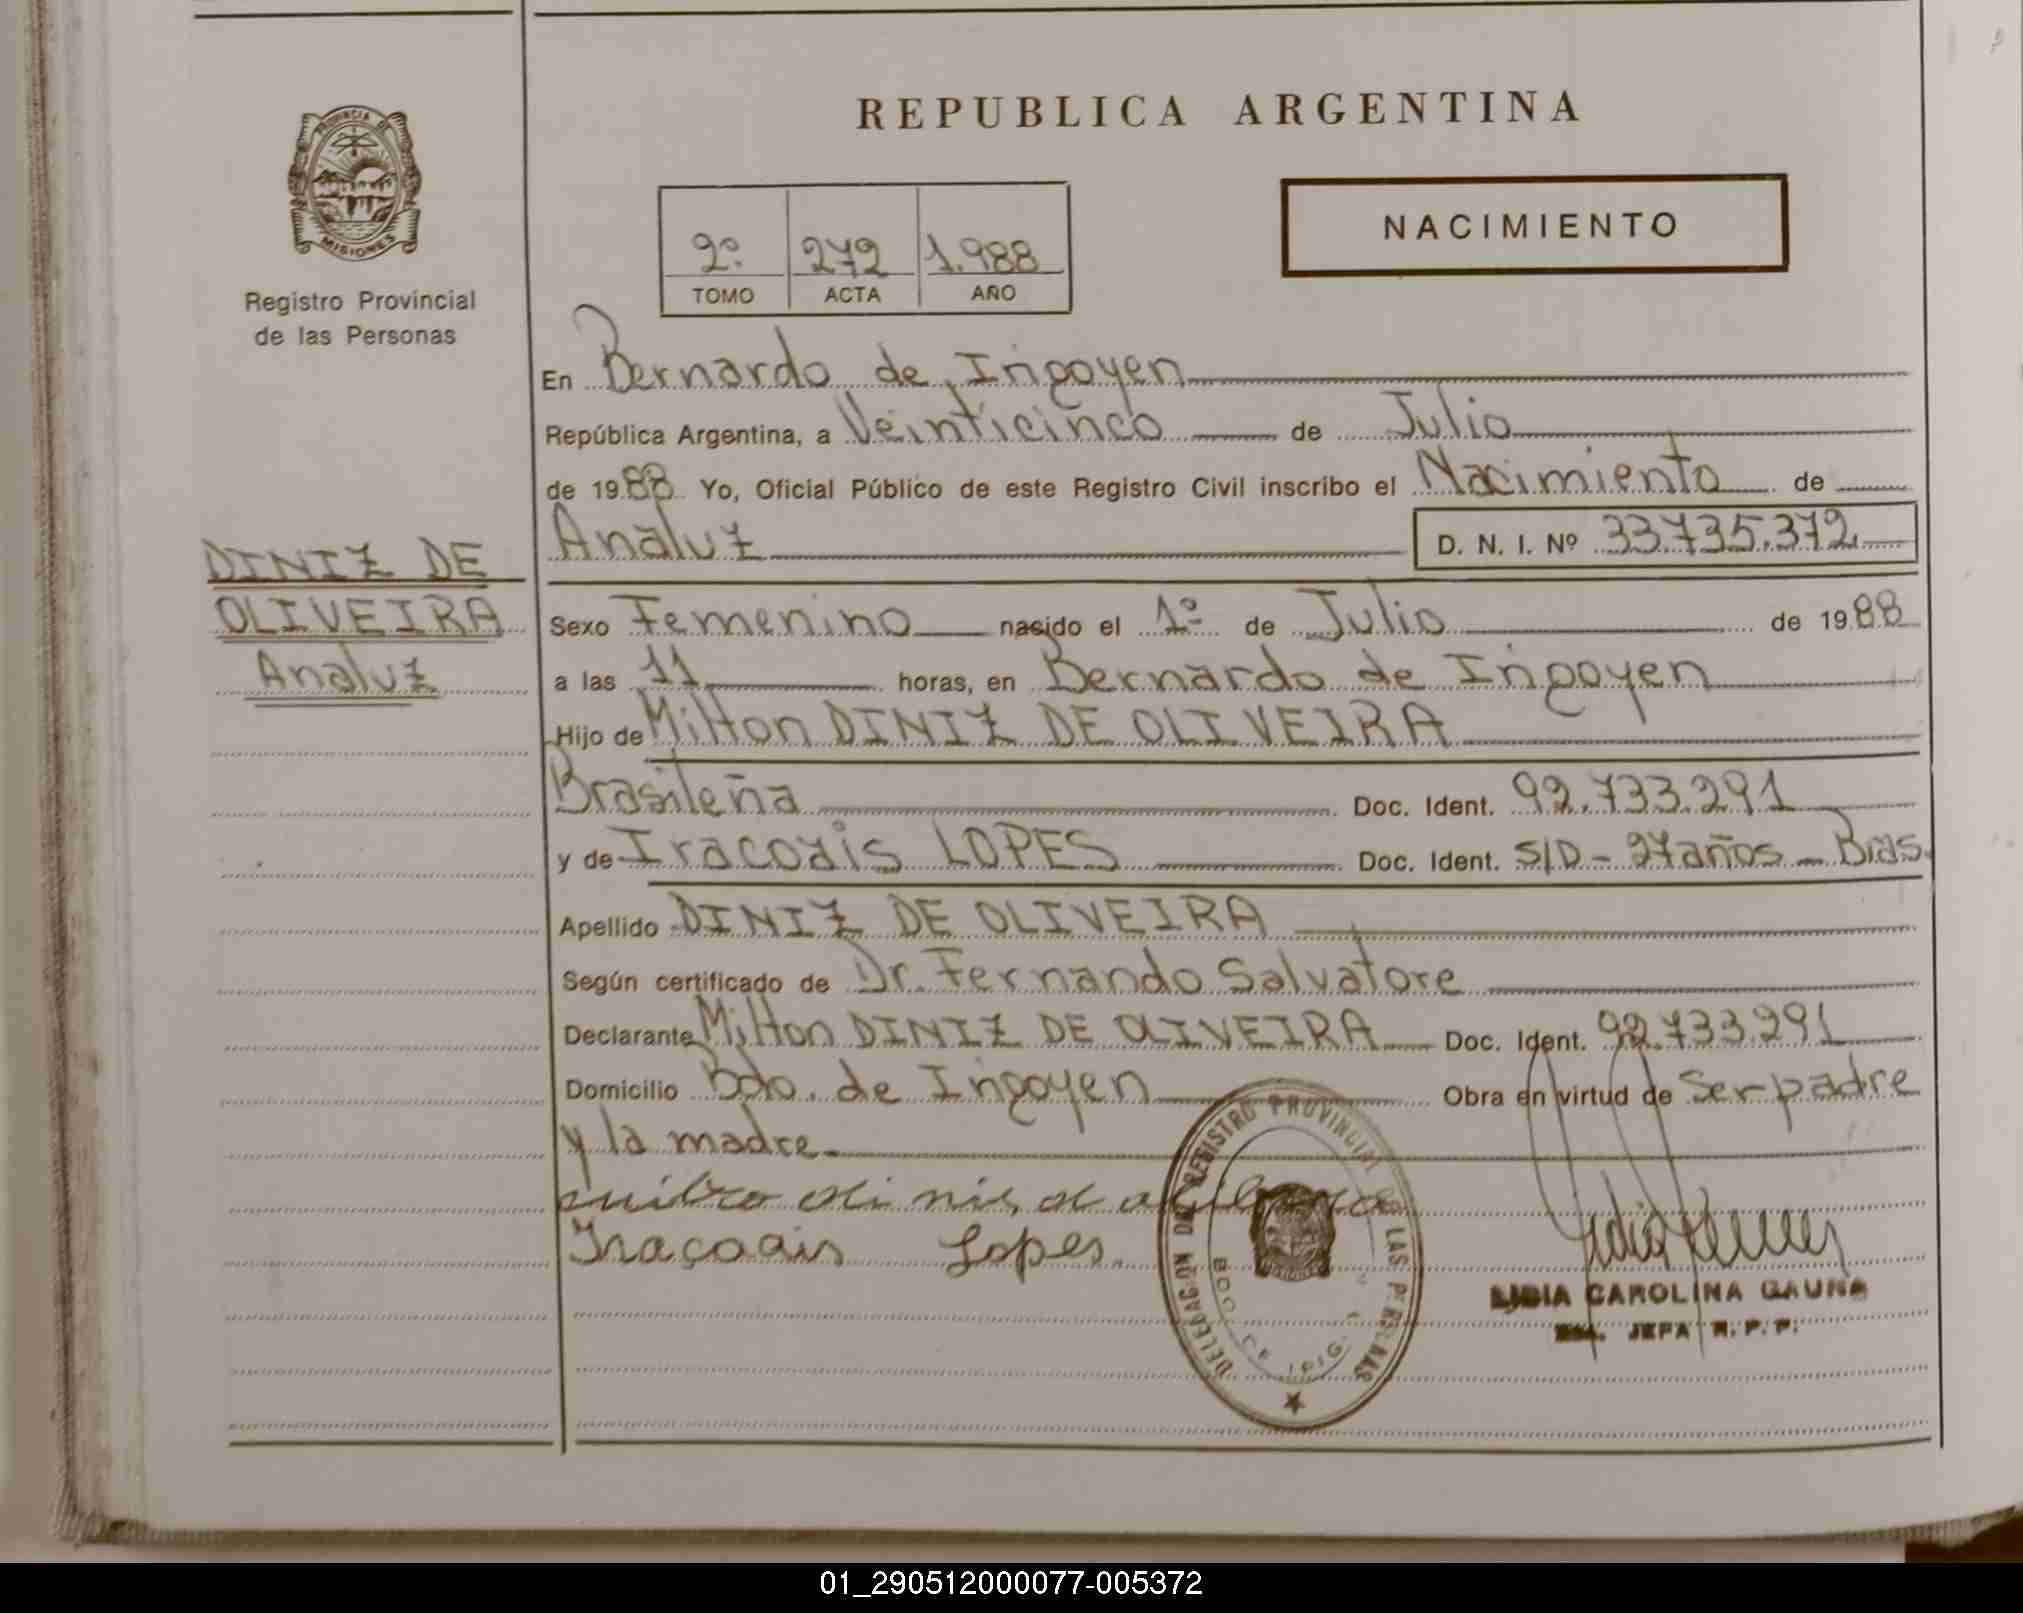 REPUBLICA ARGENTINA
PROVINCIA DE
MISIONES
Registro Provincial
de las Personas
2º 272 1.988
TOMO ACTA AÑO
NACIMIENTO
En Bernardo de Irigoyen
República Argentina, a Veinticinco de Julio
de 1988 Yo, Oficial Público de este Registro Civil inscribo el Nacimiento de
Analuz D. N. I. Nº 33.735.372
DINIZ DE
OLIVEIRA
Analuz
Sexo Femenino nasido el 1º de Julio de 1988
a las 11 horas, en Bernardo de Irigoyen
Hijo de Milton DINIZ DE OLIVEIRA
Brasileña Doc. Ident. 92.733.291
y de Iracoais LOPES Doc. Ident. S/D - 27 años - Bras.
Apellido DINIZ DE OLIVEIRA
Según certificado de Dr. Fernando Salvatore
Declarante Milton DINIZ DE OLIVEIRA Doc. Ident. 92.733.291
Domicilio Bdo. de Irigoyen Obra en virtud de Ser padre
y la madre
Iraçoais Lopes.
DELEGACION DEL REGISTRO PROVINCIAL DE LAS PERSONAS
BDO. DE IRIG.
LIDIA CAROLINA GAUNA
JEFA R. P. P.
01_290512000077-005372